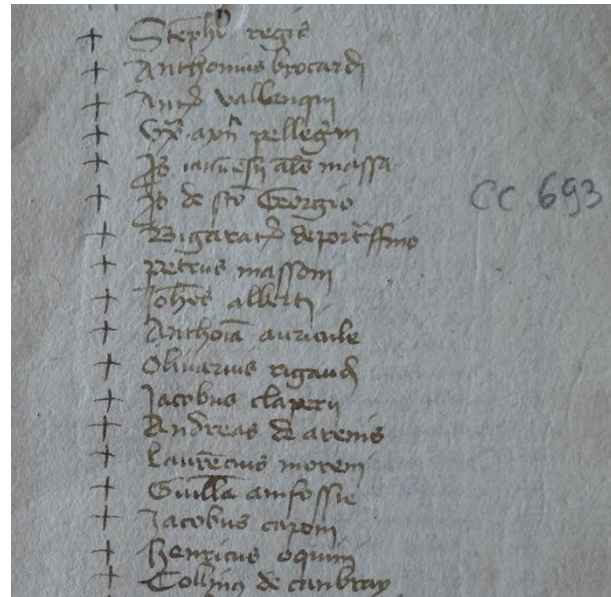 + Stephs regis
+ Anthonius brocardi
+ Ants vallenqui
+ Vx axn pellegrin
+ Jo als massa
+ Jo de sto Georgio
CC 693
+ Bigarat de portffino
+ petrus massoni
+ Johes alberti
+ Anthoia auricule
+ Oliuarius rigaudi
+ Jacobus claperii
+ Andreas de arenis
+ Laurecius moreni
+ Guilla anfossie
+ Jacobus caroni
+ Henricus oquini
+ Collinus de canbray